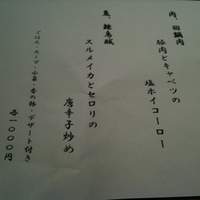 肉、回鍋肉
豚肉とキャベツの
塩ホイコーロー
魚、鍾烏賊
スルメイカとセロリの
唐辛子炒め
ごはん・スープ・小菜・香の物・デザート付き
各一〇〇〇円